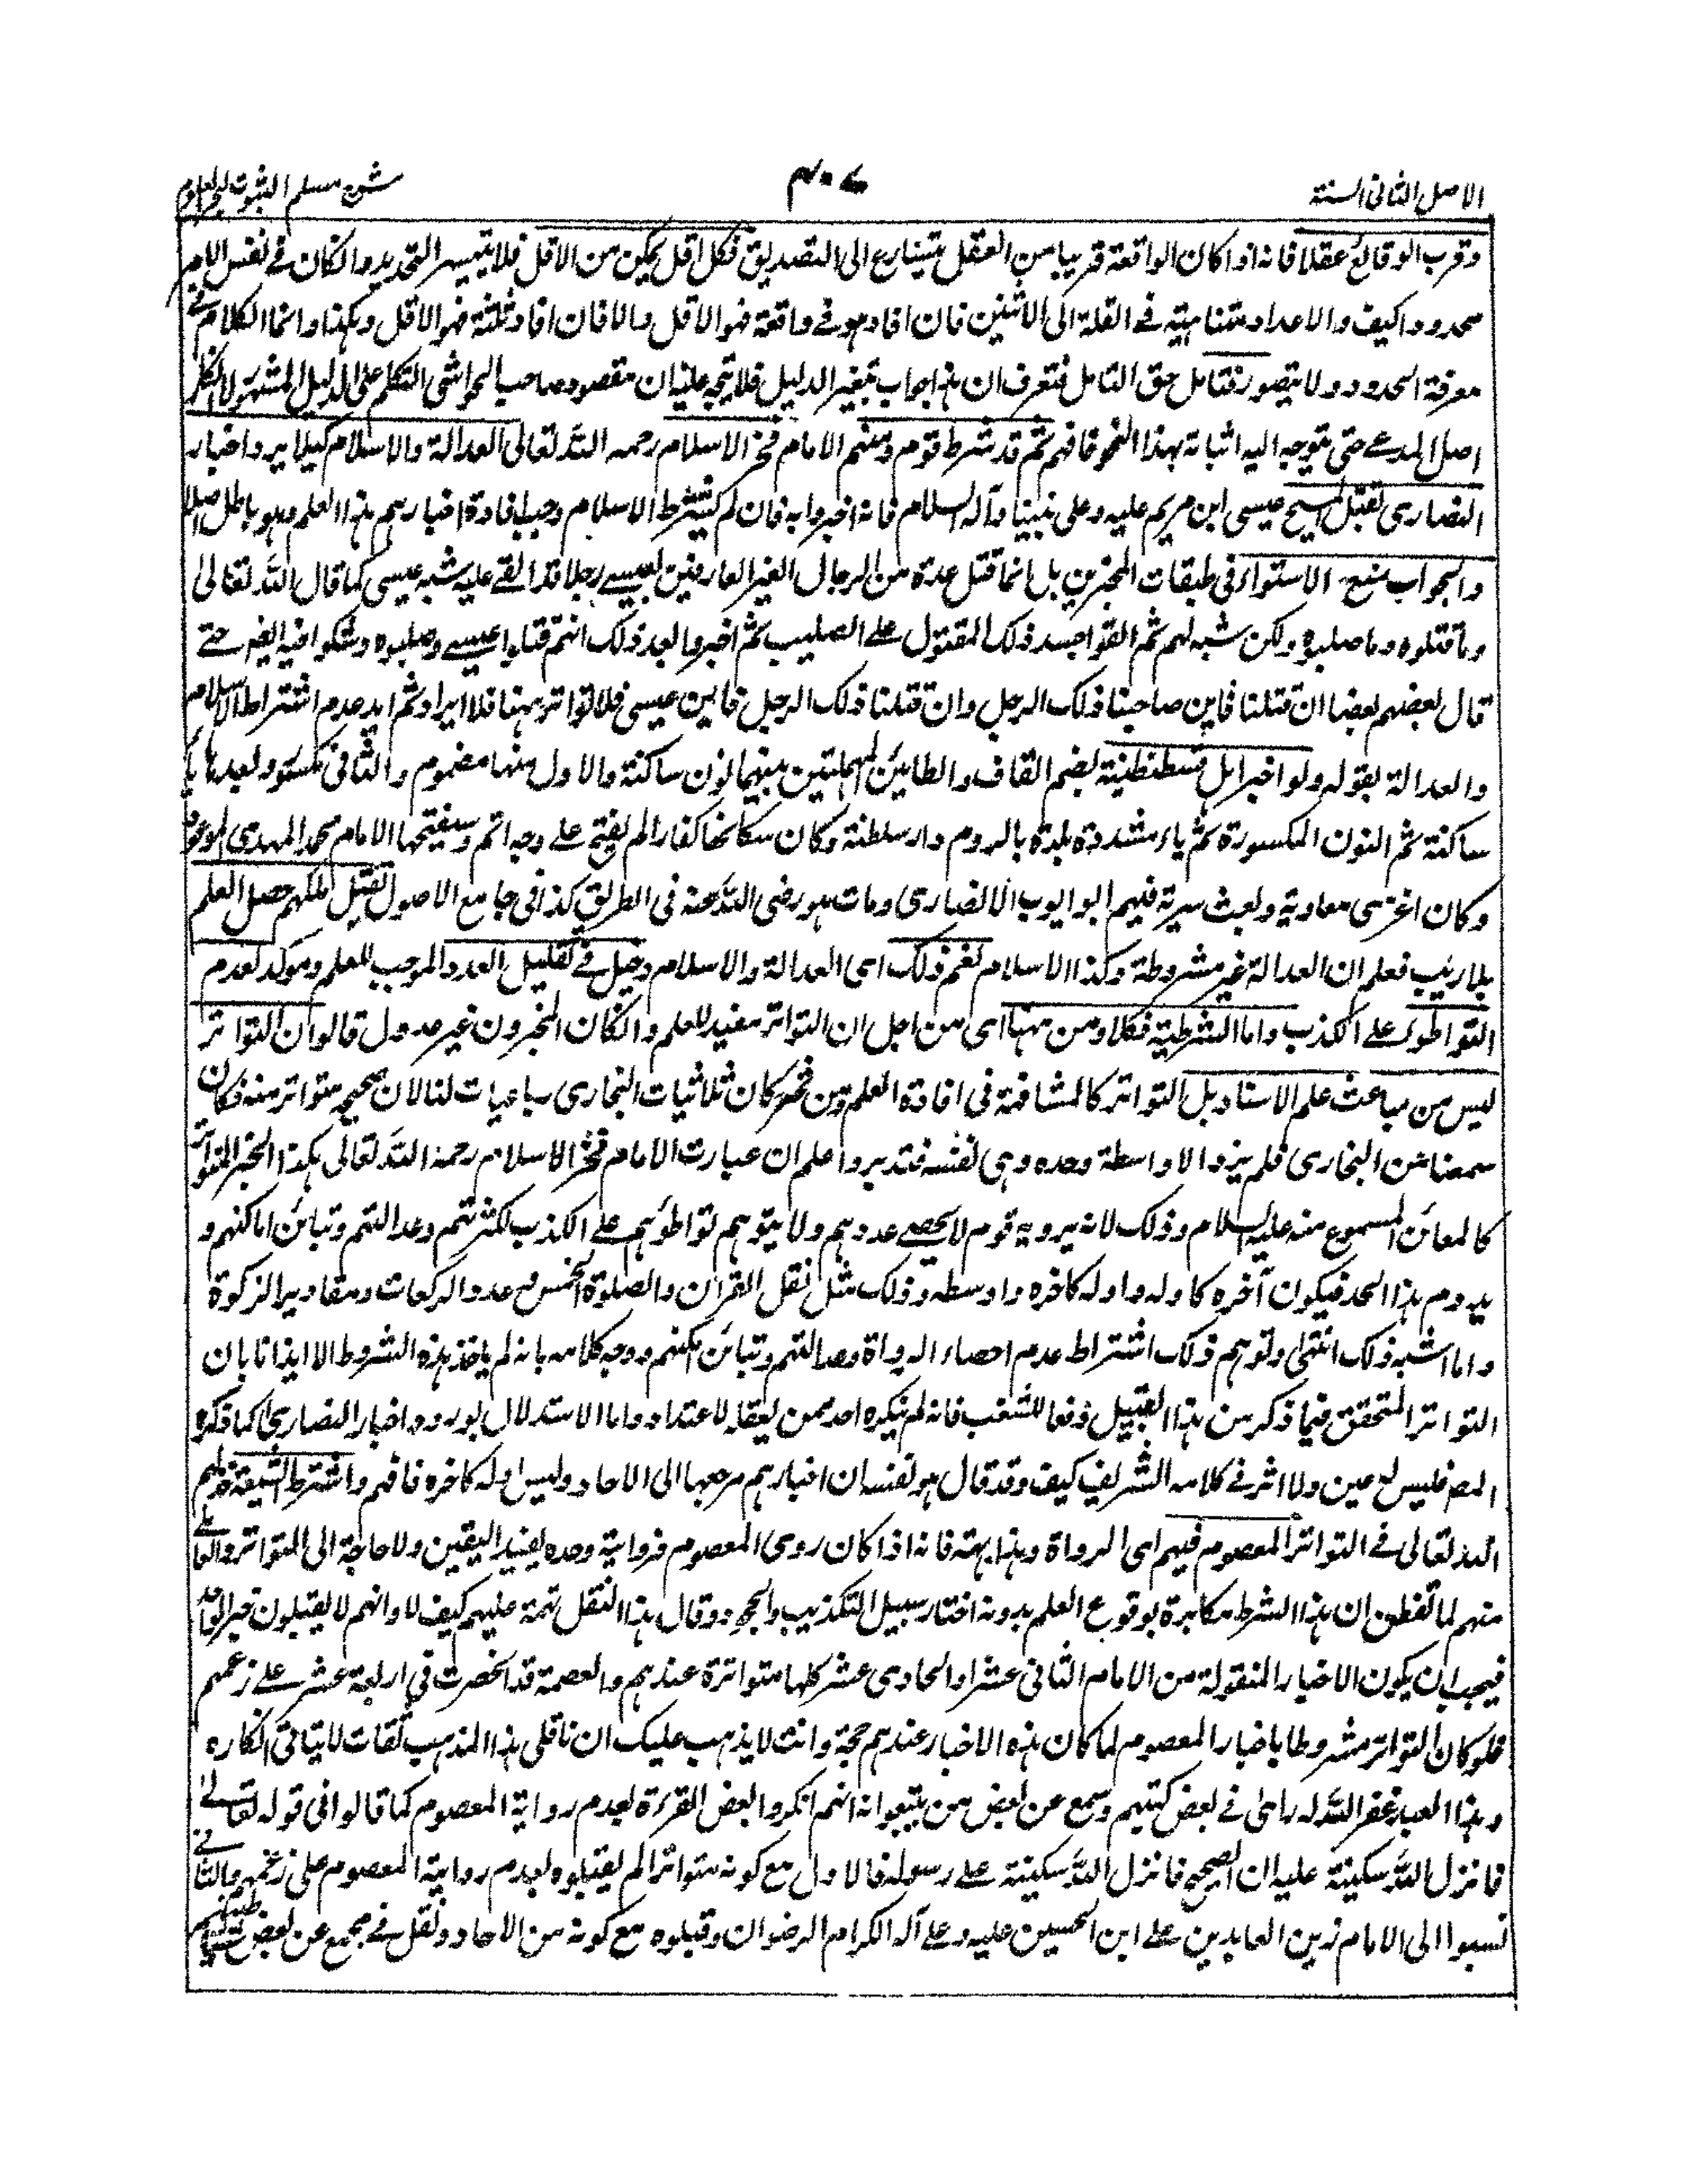 الاصل الثانی السنة
۴۰۷
شرح مسلم الثبوت لبحر العلوم
وقرب الوقائع عقلا فانه اذا كان الواقعة قريبا من العقل يتسارع الى التصديق فكل اقل يمكن من الاقل فلا يتيسر التحديد وان كان في نفس الامر
محدودا كيف والاعداد متناهية في القلة الى الاثنين فان افاد هو في واقعة فهو الاقل والا فان افاد ثلثة فهو الاقل وهكذا وانما الكلام في
معرفة المحدود ولا يتصور فتامل حق التامل فتعرف ان هذا جواب بتغير الدليل فلا يتجه عليه ان مقصود صاحب الحواشى التكلم على الدليل المشهور لا انكار
اصل المدعى حتى يتوجه اليه اثباته بهذا النحو فافهم ثم قد شرط قوم ومنهم الامام فخر الاسلام رحمه الله تعالى العدالة والاسلام كيلا يرد اخبار
النصارى بقتل المسيح عيسى ابن مريم عليه وعلى نبينا وآله السلام فانه اخبروا به فان لم يشترط الاسلام وجب افادة اخبارهم هذا العلم وهو باطل اصلا
والجواب منع الاستواء في طبقات المخبرين بل انما قتل عدة من الرجال الغير العارفين لعيسى رجلا قد القى عليه شبه عيسى كما قال الله تعالى
وما قتلوه وما صلبوه ولكن شبه لهم ثم القوا جسد ذلك المقتول على الصليب ثم اخبروا بعد ذلك انهم قتلوا عيسى وصلبوه وشكوا فيه ايضا حتى
قال بعضهم بعضا ان قتلنا فاين صاحبنا ذلك الرجل وان قتلنا ذلك الرجل فاين عيسى فلا تواتر ههنا فلا ايراد ثم ايد عدم اشتراط الاسلام
والعدالة بقوله ولو اخبر اهل قسطنطينة بضم القاف والطائين المهملتين بينهما نون ساكنة والاول منهما مضموم والثانى مكسور وبعدها ياء
ساكنة ثم النون المكسورة ثم ياء مشددة بلدة بالروم دار سلطنة وكان سكانها كفارا لم يفتح على وجه اتم وسيفتحها الامام محمد المهدى الموعود
وكان اغزى معاوية وبعث سرية فيهم ابو ايوب الانصارى ومات هو رضى الله عنه في الطريق كذا في جامع الاصول بقتل ملكهم حصل العلم
بلا ريب فعلم ان العدالة غير مشروطة وكذا الاسلام نعم ذلك اى العدالة والاسلام دخيل في تقليل العدد الموجب للعلم وموكد لعدم
التواطؤ على الكذب واما الشرطية فكلا ومن ههنا اى من اجل ان التواتر مفيد للعلم وان كان المخبرون غير عدول قالوا ان التواتر
ليس من مباحث علم الاسناد بل التواتر كالمشافهة في افادة العلم ومن ثم كان ثلاثيات البخارى رباعيات لنا لان صحيحه متواتر منه فكان
سمعنا من البخارى فلم يزد الا واسطة وحده وهى نفسه فتدبر واعلم ان عبارت الامام فخر الاسلام رحمه الله تعالى هكذا الخبر المتواتر
كالمعاين المسموع منه عليه السلام وذلك لانه يرويه قوم لا يحصى عددهم ولا يتوهم تواطؤهم على الكذب لكثرتهم وعدالتهم وتباين اماكنهم و
يدوم هذا الحد فيكون آخره كاوله واوله كاخره واوسطه وذلك مثل نقل القرآن والصلوة الخمس وعدد الركعات ومقادير الزكوة
وما اشبه ذلك انتهى وتوهم ذلك اشتراط عدم احصاء الرواة وعدالتهم وتباين امكنتهم ووجه كلامه بانه لم ياخذ هذه الشروط الا ايذانا بان
التواتر المتحقق فيما ذكر من هذا القبيل دفعا للشغب فانه لم ينكره احد ممن يعقل لاعتداد واما الاستدلال بورود اخبار النصارى كما ذكره
المص فليس له عين ولا اثر في كلامه الشريف كيف وقد قال هو نفسه ان اخبارهم مرجعها الى الاحاد وليس اوله كاخره فافهم واشترط الشيعة خذلهم
الله تعالى في التواتر المعصوم فيهم اى الرواة وهذا بهت فانه اذا كان روى المعصوم فروايته وحده يفيد اليقين ولا حاجة الى التواتر والعاملى
منهم لما تفطن ان هذا الشرط مكابرة بوقوع العلم بدونه اختار سبيل التكذيب والجحود وقال هذا النقل تهمة عليهم كيف لا وانهم لا يقبلون خبر الواحد
فيجب ان يكون الاخبار المنقولة من الامام الثانى عشر او الحادى عشر كلها متواترة عندهم والعصمة قد انحصرت في اربعة عشر على زعمهم
فلو كان التواتر مشروطا باخبار المعصوم لما كان هذه الاخبار عندهم حجة وانت لا يذهب عليك ان ناقلى هذا المذهب ثقات لا يتاتى انكاره
وهذا العبد غفر الله له راى في بعض كتبهم وسمع عن بعض من يتبعوا انه انهم انكروا بعض القرءة لعدم رواية المعصوم كما قالوا في قوله تعالى
فانزل الله سكينته عليه ان الصحيح فانزل الله سكينته على رسوله فالاول مع كونه متواترا لم يقبلوه لعدم رواية المعصوم على زعمهم والثانى
نسبوا الى الامام زين العابدين على ابن الحسين عليه وعلى آله الكرام الرضوان وقبلوه مع كونه من الاحاد ونقل في مجمع عن بعض